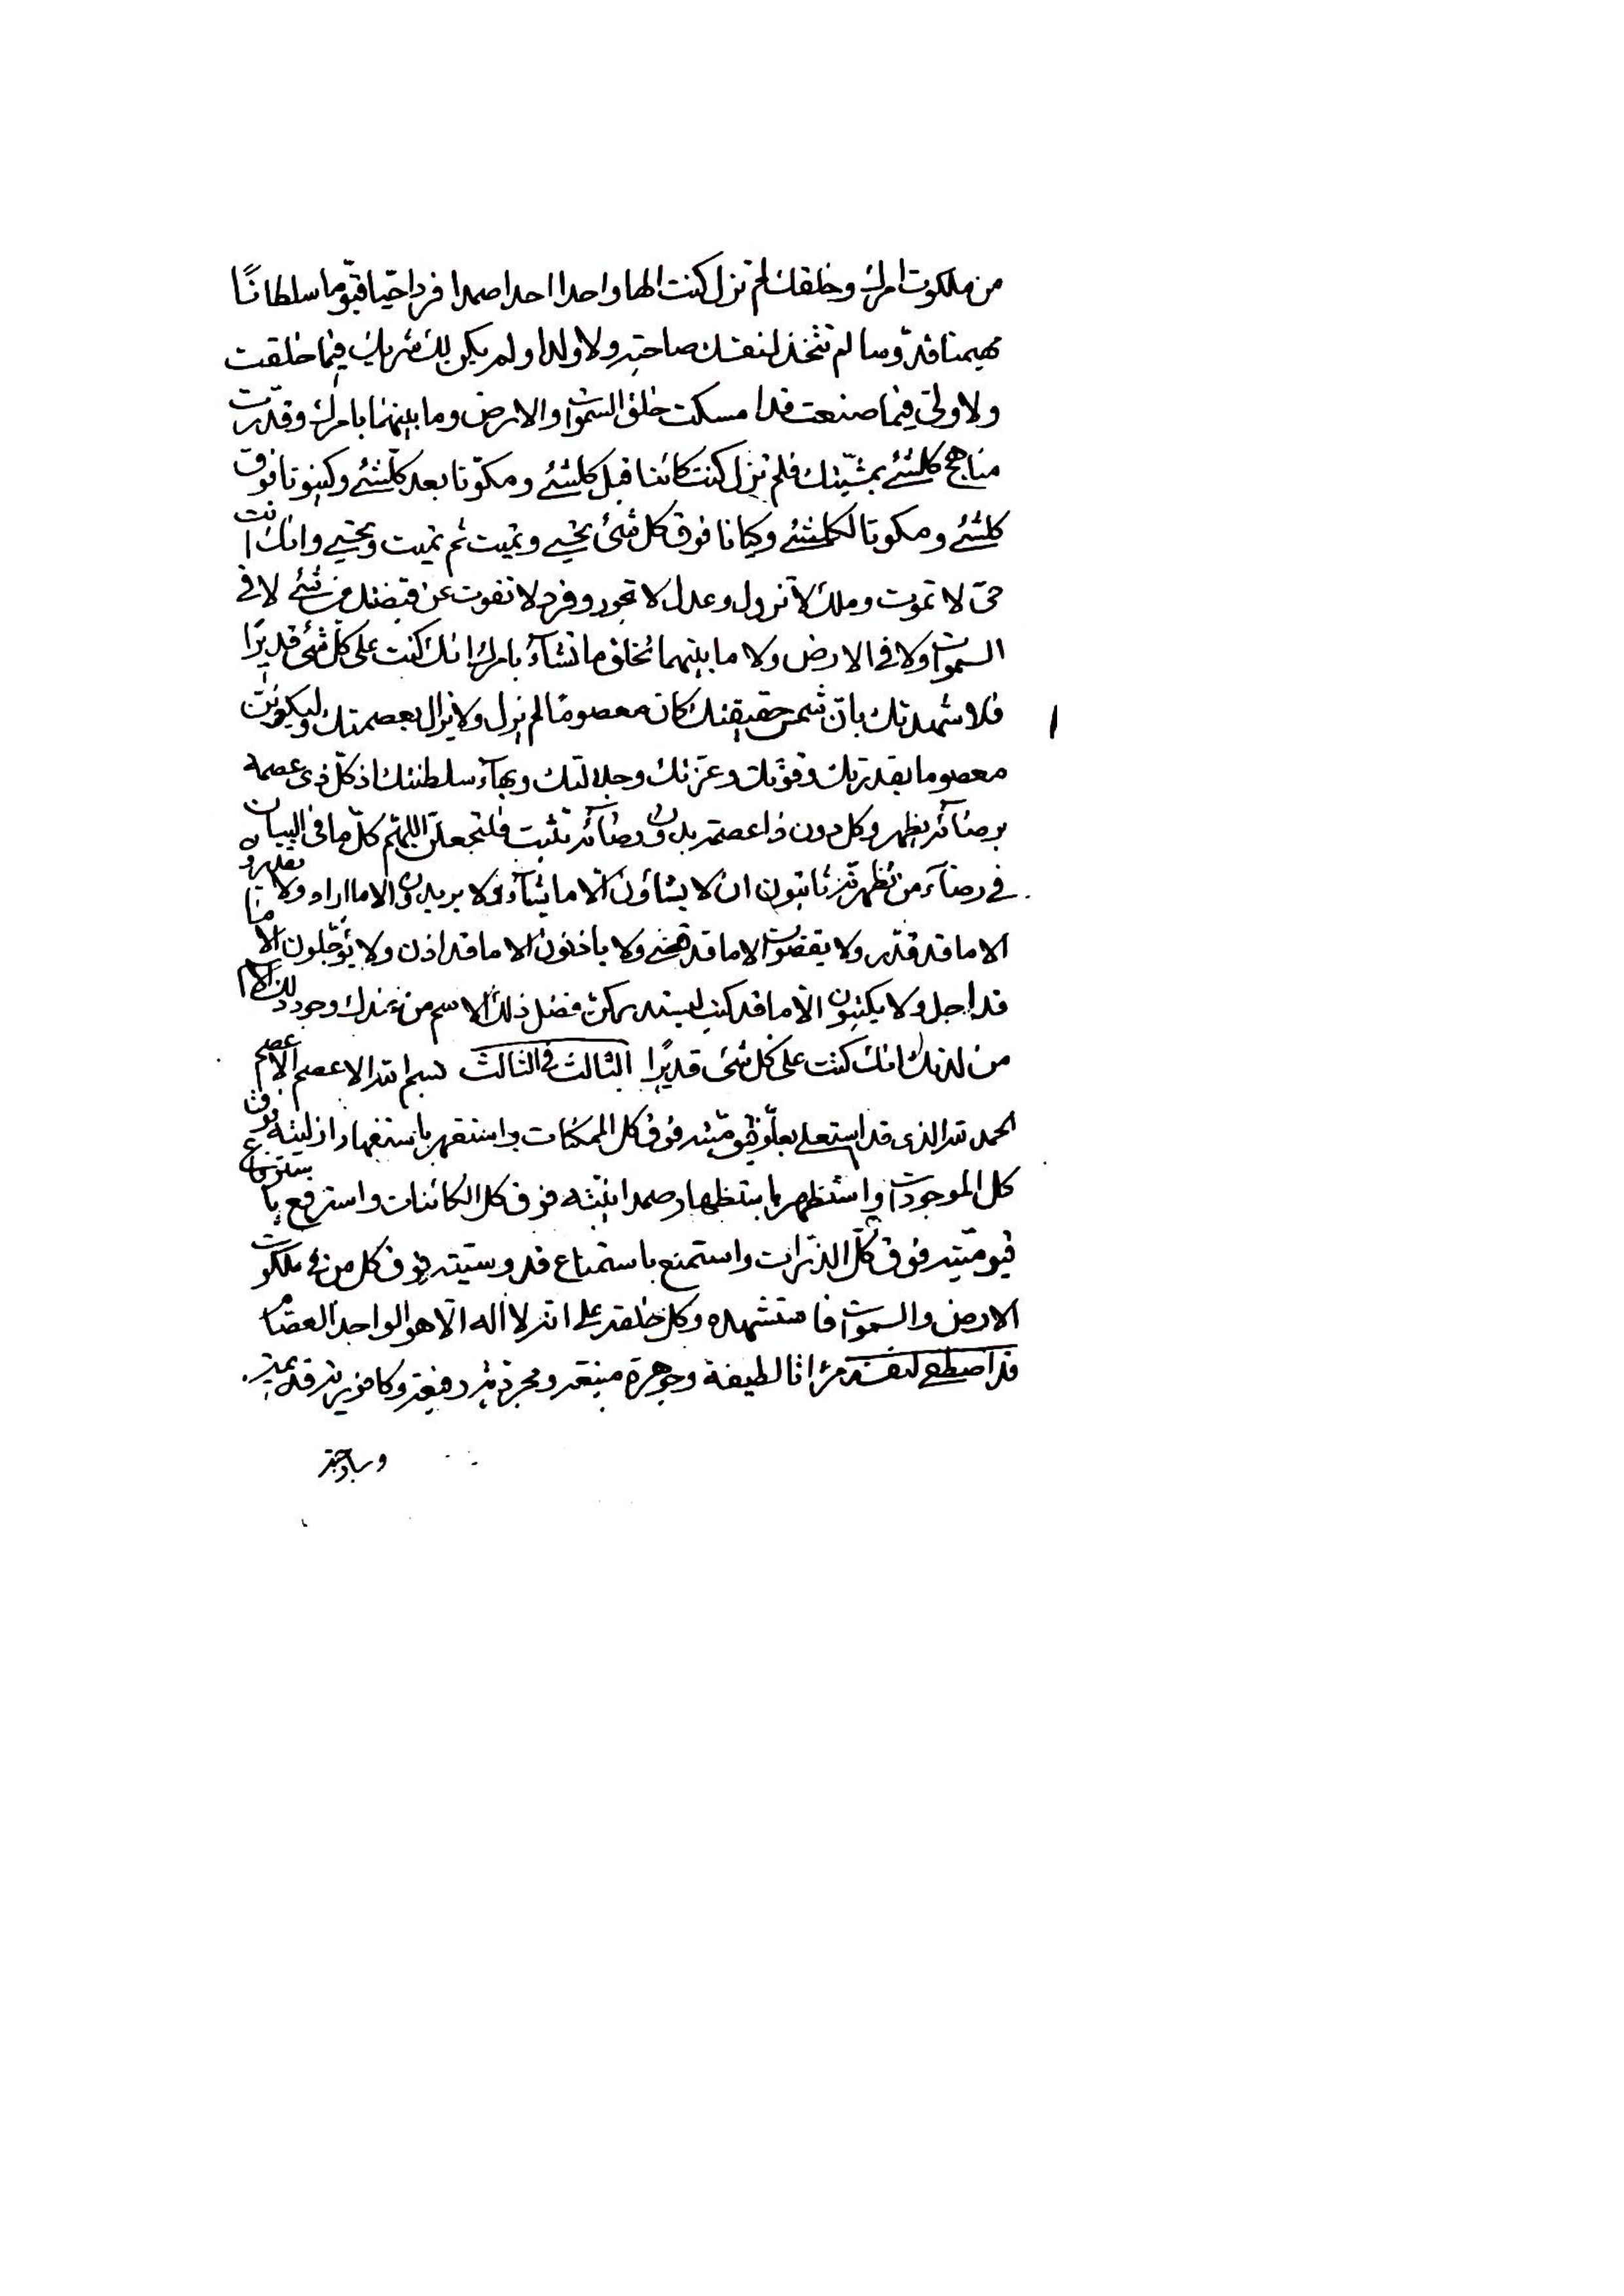 من ملكوت امرك وخلقك لم تزل كنت الها واحدا احدا صمدا فردا حيّا قيّوما سلطانًا
مهيمنا قدّوسا لم تتخذ لنفسك صاحبة ولا ولدا ولم يكن لك شريك فيما خلقت
ولا ولىّ فيما صنعت قد امسكت خلق السموات والارض وما بينهما بامرك وقدرت
مناهج كلشئ بمشيّتك فلم تزل كنت كائنا قبل كلشئ ومكوّنا بعد كلّشئ وكينونا فوق
كلشئ ومكونا لكلشئ وكيانا فوق كل شئ تحيى وتميت ثم تميت وتحيى وانك انت
حىّ لا تموت وملك لا تزول وعدل لا تجور وفرد لا تفوت عن قبضتك من شئ لا فى
السموات ولا فى الارض ولا ما بينهما تخلق ما تشآء بامرك انك كنت على كلّ شئ قديرًا
فلاشهدنك بانّ شمس حقيقتك كان معصومًا لم يزل ولا يزال بعصمتك وليكوننّ
معصوما بقدرتك وقوّتك وعزتك وجلالتك وبهآء سلطنتك اذ كلّ ذى عصمة
برضآئه يظهر وكل دون ذا عصمة بدون رضآئه تثبت فلتجعلنّ اللهمّ كلّ ما فى البيان
فى رضآء من تظهرنّه ثابتون ان لا يشاؤن الّا ما يشآء ولا يريدون الا ما اراد ولا يقدرون
الا ما قد قدّر ولا يقضون الا ما قد قضى ولا ياذنون الا ما قد اذن ولا يؤجّلون الا ما
قد اجل ولا يكتبون الّا ما قد كتب ليستدركنّ فضل ذلك الاسم من عندك وجود ذلك الاسم
من لدنك انك كنت على كل شئ قديرًا الثالث فى الثالث بسم الله الاعصم الاعصم
الحمد لله الذى قد استعلى بعلوّ قيّوميّته فوق كل الممكنات واستقهر باستقهار ازليته فوق
كل الموجودات واستظهر باستظهار صمدانيّته فوق كل الكائنات واسترفع باسترفاع
قيوميّته فوق كلّ الذرّات واستمنع باستمناع قدوسيّته فوق كل من فى ملكوت
الارض والسموات فاستشهده وكل خلقه على انه لا اله الّا هو الواحد العصّام
قد اصطفى لنفسه مرءاتا لطيفة وجوهرة منيعة ومجردة رفيعة وكافورية قديمة
وساذجية